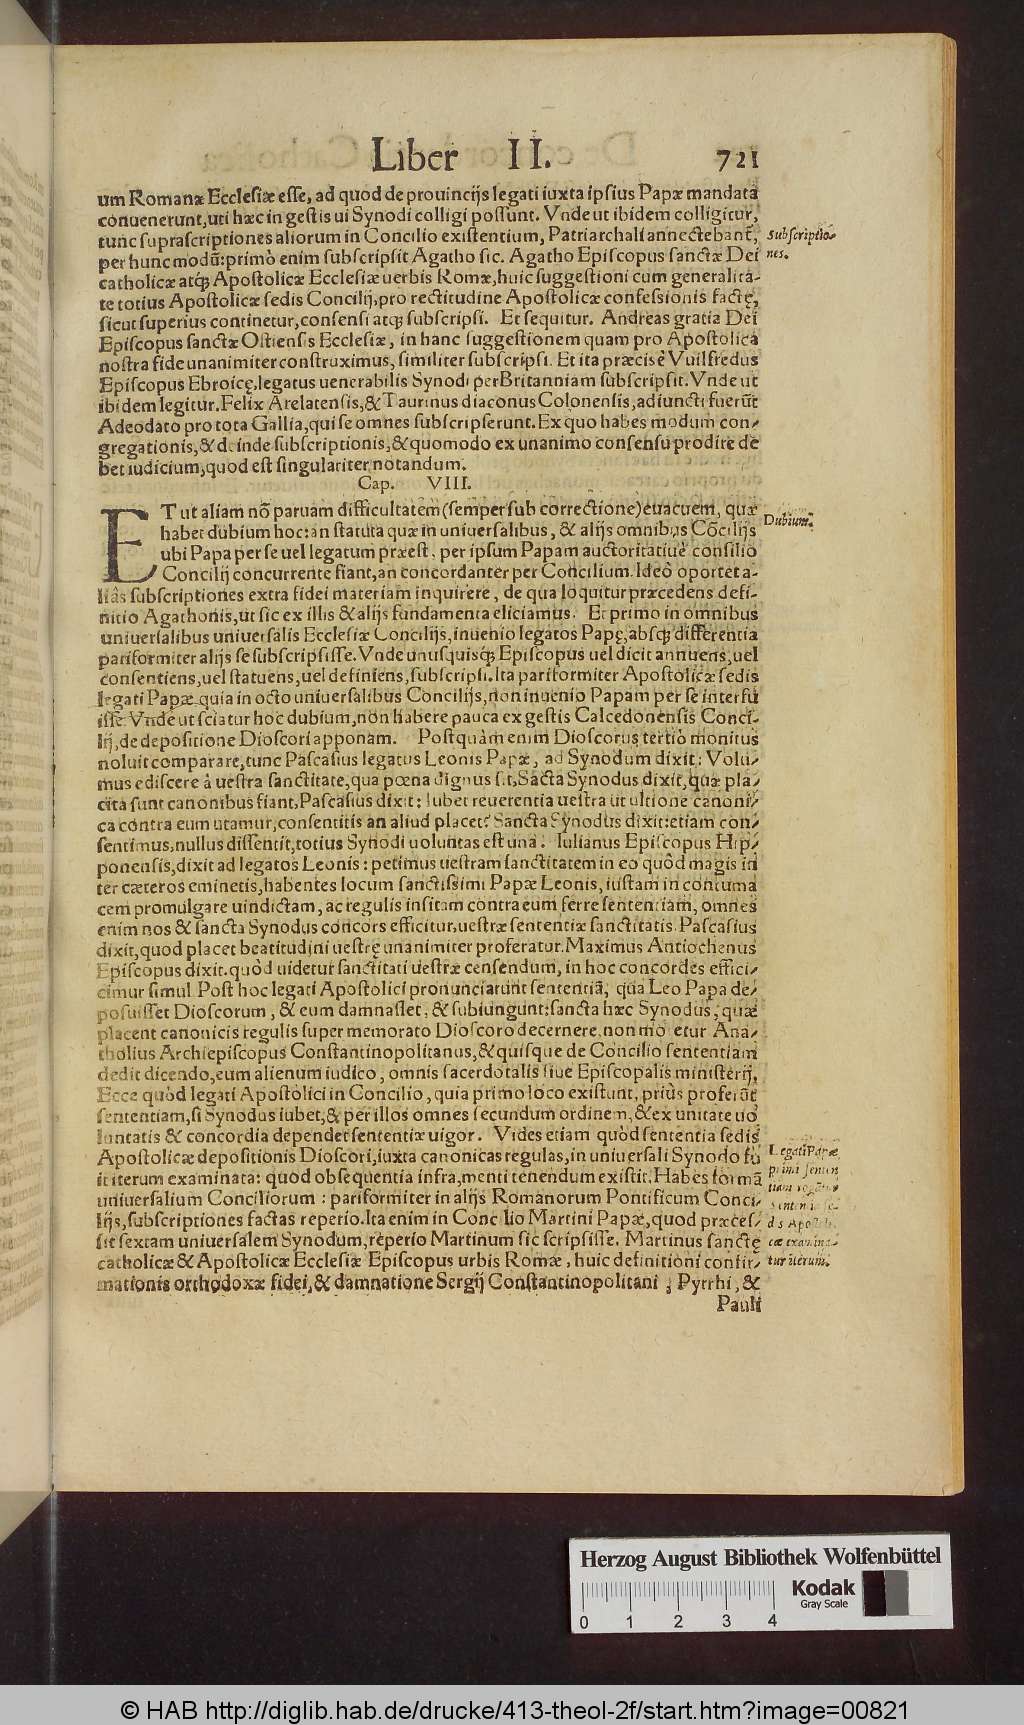 Liber II. 721
um Romanæ Ecclesiæ esse, ad quod de prouincijs legati iuxta ipsius Papæ mandata
conuenerunt, uti hæc in gestis ui Synodi colligi possunt. Vnde ut ibidem colligitur,
tunc suprascriptiones aliorum in Concilio existentium, Patriarchali annectebant̃,
Subscriptio-
nes.
per hunc modũ: primò enim subscripsit Agatho sic. Agatho Episcopus sanctæ Dei
catholicæ atq; Apostolicæ Ecclesiæ uerbis Romæ, huic suggestioni cum generalita-
te totius Apostolicæ sedis Concilij, pro rectitudine Apostolicæ confessionis factę,
sicut superius continetur, consensi atq; subscripsi. Et sequitur. Andreas gratia Dei
Episcopus sanctæ Ostiensis Ecclesiæ, in hanc suggestionem quam pro Apostolica
nostra fide unanimiter construximus, similiter subscripsi. Et ita præcisè Vuilfredus
Episcopus Ebroicę, legatus uenerabilis Synodi per Britanniam subscripsit. Vnde ut
ibidem legitur. Felix Arelatensis, & Taurinus diaconus Colonensis, adiuncti fuerũt
Adeodato pro tota Gallia, qui se omnes subscripserunt. Ex quo habes modum con-
gregationis, & deinde subscriptionis, & quomodo ex unanimo consensu prodire de
bet iudicium, quod est singulariter notandum.
Cap. VIII.
ET ut aliam nõ paruam difficultatem (semper sub correctione) euacuem, quæ
Dubium.
habet dubium hoc: an statuta quæ in uniuersalibus, & alijs omnibus Cõcilijs
ubi Papa per se uel legatum præest, per ipsum Papam auctoritatiuè consilio
Concilij concurrente fiant, an concordanter per Concilium. Ideò oportet a-
liâs subscriptiones extra fidei materiam inquirere, de qua loquitur præcedens defi-
nitio Agathonis, ut sic ex illis & alijs fundamenta eliciamus. Et primo in omnibus
uniuersalibus uniuersalis Ecclesiæ Concilijs, inuenio legatos Papę, absq; differentia
pariformiter alijs se subscripsisse. Vnde unusquisq; Episcopus uel dicit annuens, uel
consentiens, uel statuens, uel definiens, subscripsi. Ita pariformiter Apostolicæ sedis
legati Papæ quia in octo uniuersalibus Concilijs, non inuenio Papam per se interfu
isse Vnde ut sciatur hoc dubium, non habere pauca ex gestis Calcedonensis Conci-
lij, de depositione Dioscori apponam. Postquàm enim Dioscorus tertiò monitus
noluit comparare, tunc Pascasius legatus Leonis Papæ, ad Synodum dixit: Volu-
mus ediscere à uestra sanctitate, qua pœna dignus sit, Sãcta Synodus dixit, quæ pla-
cita sunt canonibus fiant, Pascasius dixit: Iubet reuerentia uestra ut ultione canoni-
ca contra eum utamur, consentitis an aliud placet? Sancta Synodus dixit: etiam con-
sentimus, nullus dissentit, totius Synodi uoluntas est una. Iulianus Episcopus Hip-
ponensis, dixit ad legatos Leonis: petimus uestram sanctitatem in eo quòd magis in
ter cæteros eminetis, habentes locum sanctissimi Papæ Leonis, iustam in contuma
cem promulgare uindictam, ac regulis insitam contra eum ferre sententiam, omnes
enim nos & sancta Synodus concors efficitur, uestræ sententiæ sanctitatis. Pascasius
dixit, quod placet beatitudini uestrę unanimiter proferatur. Maximus Antiochenus
Episcopus dixit. quòd uidetur sanctitati uestræ censendum, in hoc concordes effici-
cimur simul Post hoc legati Apostolici pronunciarunt sententiã, quà Leo Papa de-
posuisset Dioscorum, & eum damnasset, & subiungunt: sancta hæc Synodus, quæ
placent canonicis regulis super memorato Dioscoro decernere, non mo etur Ana-
tholius Archiepiscopus Constantinopolitanus, & quisque de Concilio sententiam
dedit dicendo, eum alienum iudico, omnis sacerdotalis siue Episcopalis ministerij,
Ecce quòd legati Apostolici in Concilio, quia primo loco existunt, priùs proferũt
sententiam, si Synodus iubet, & per illos omnes secundum ordinem, & ex unitate uo
luntatis & concordia dependet sententiæ uigor. Vides etiam quòd sententia sedis
Apostolicæ depositionis Dioscori, iuxta canonicas regulas, in uniuersali Synodo fu
Legati Papæ
it iterum examinata: quod obsequentia infra, menti tenendum existit. Habes formã
primi senten
tiam
uniuersalium Conciliorum: pariformiter in alijs Romanorum Pontificum Conci-
lijs, subscriptiones factas reperio. Ita enim in Concilio Martini Papæ, quod præces-
sit sextam uniuersalem Synodum, reperio Martinum sic scripsisse. Martinus sanctę
catholicæ & Apostolicæ Ecclesiæ Episcopus urbis Romæ, huic definitioni confir-
tur iterum.
mationis orthodoxæ fidei, & damnatione Sergij Constantinopolitani, Pyrrhi, &
Pauli
Herzog August Bibliothek Wolfenbüttel
Kodak
Gray Scale
0 1 2 3 4
© HAB http://diglib.hab.de/drucke/413-theol-2f/start.htm?image=00821